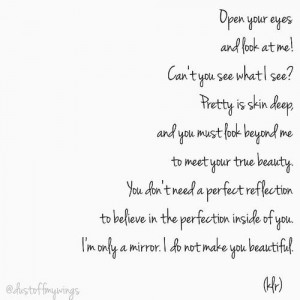 Open your eyes
and look at me!
Can't you see what I see?
Pretty is skin deep,
and you must look beyond me
to meet your true beauty.
You don't need a perfect reflection
to believe in the perfection inside of you.
I'm only a mirror. I do not make you beautiful.
(klr)
@dustoffmywings